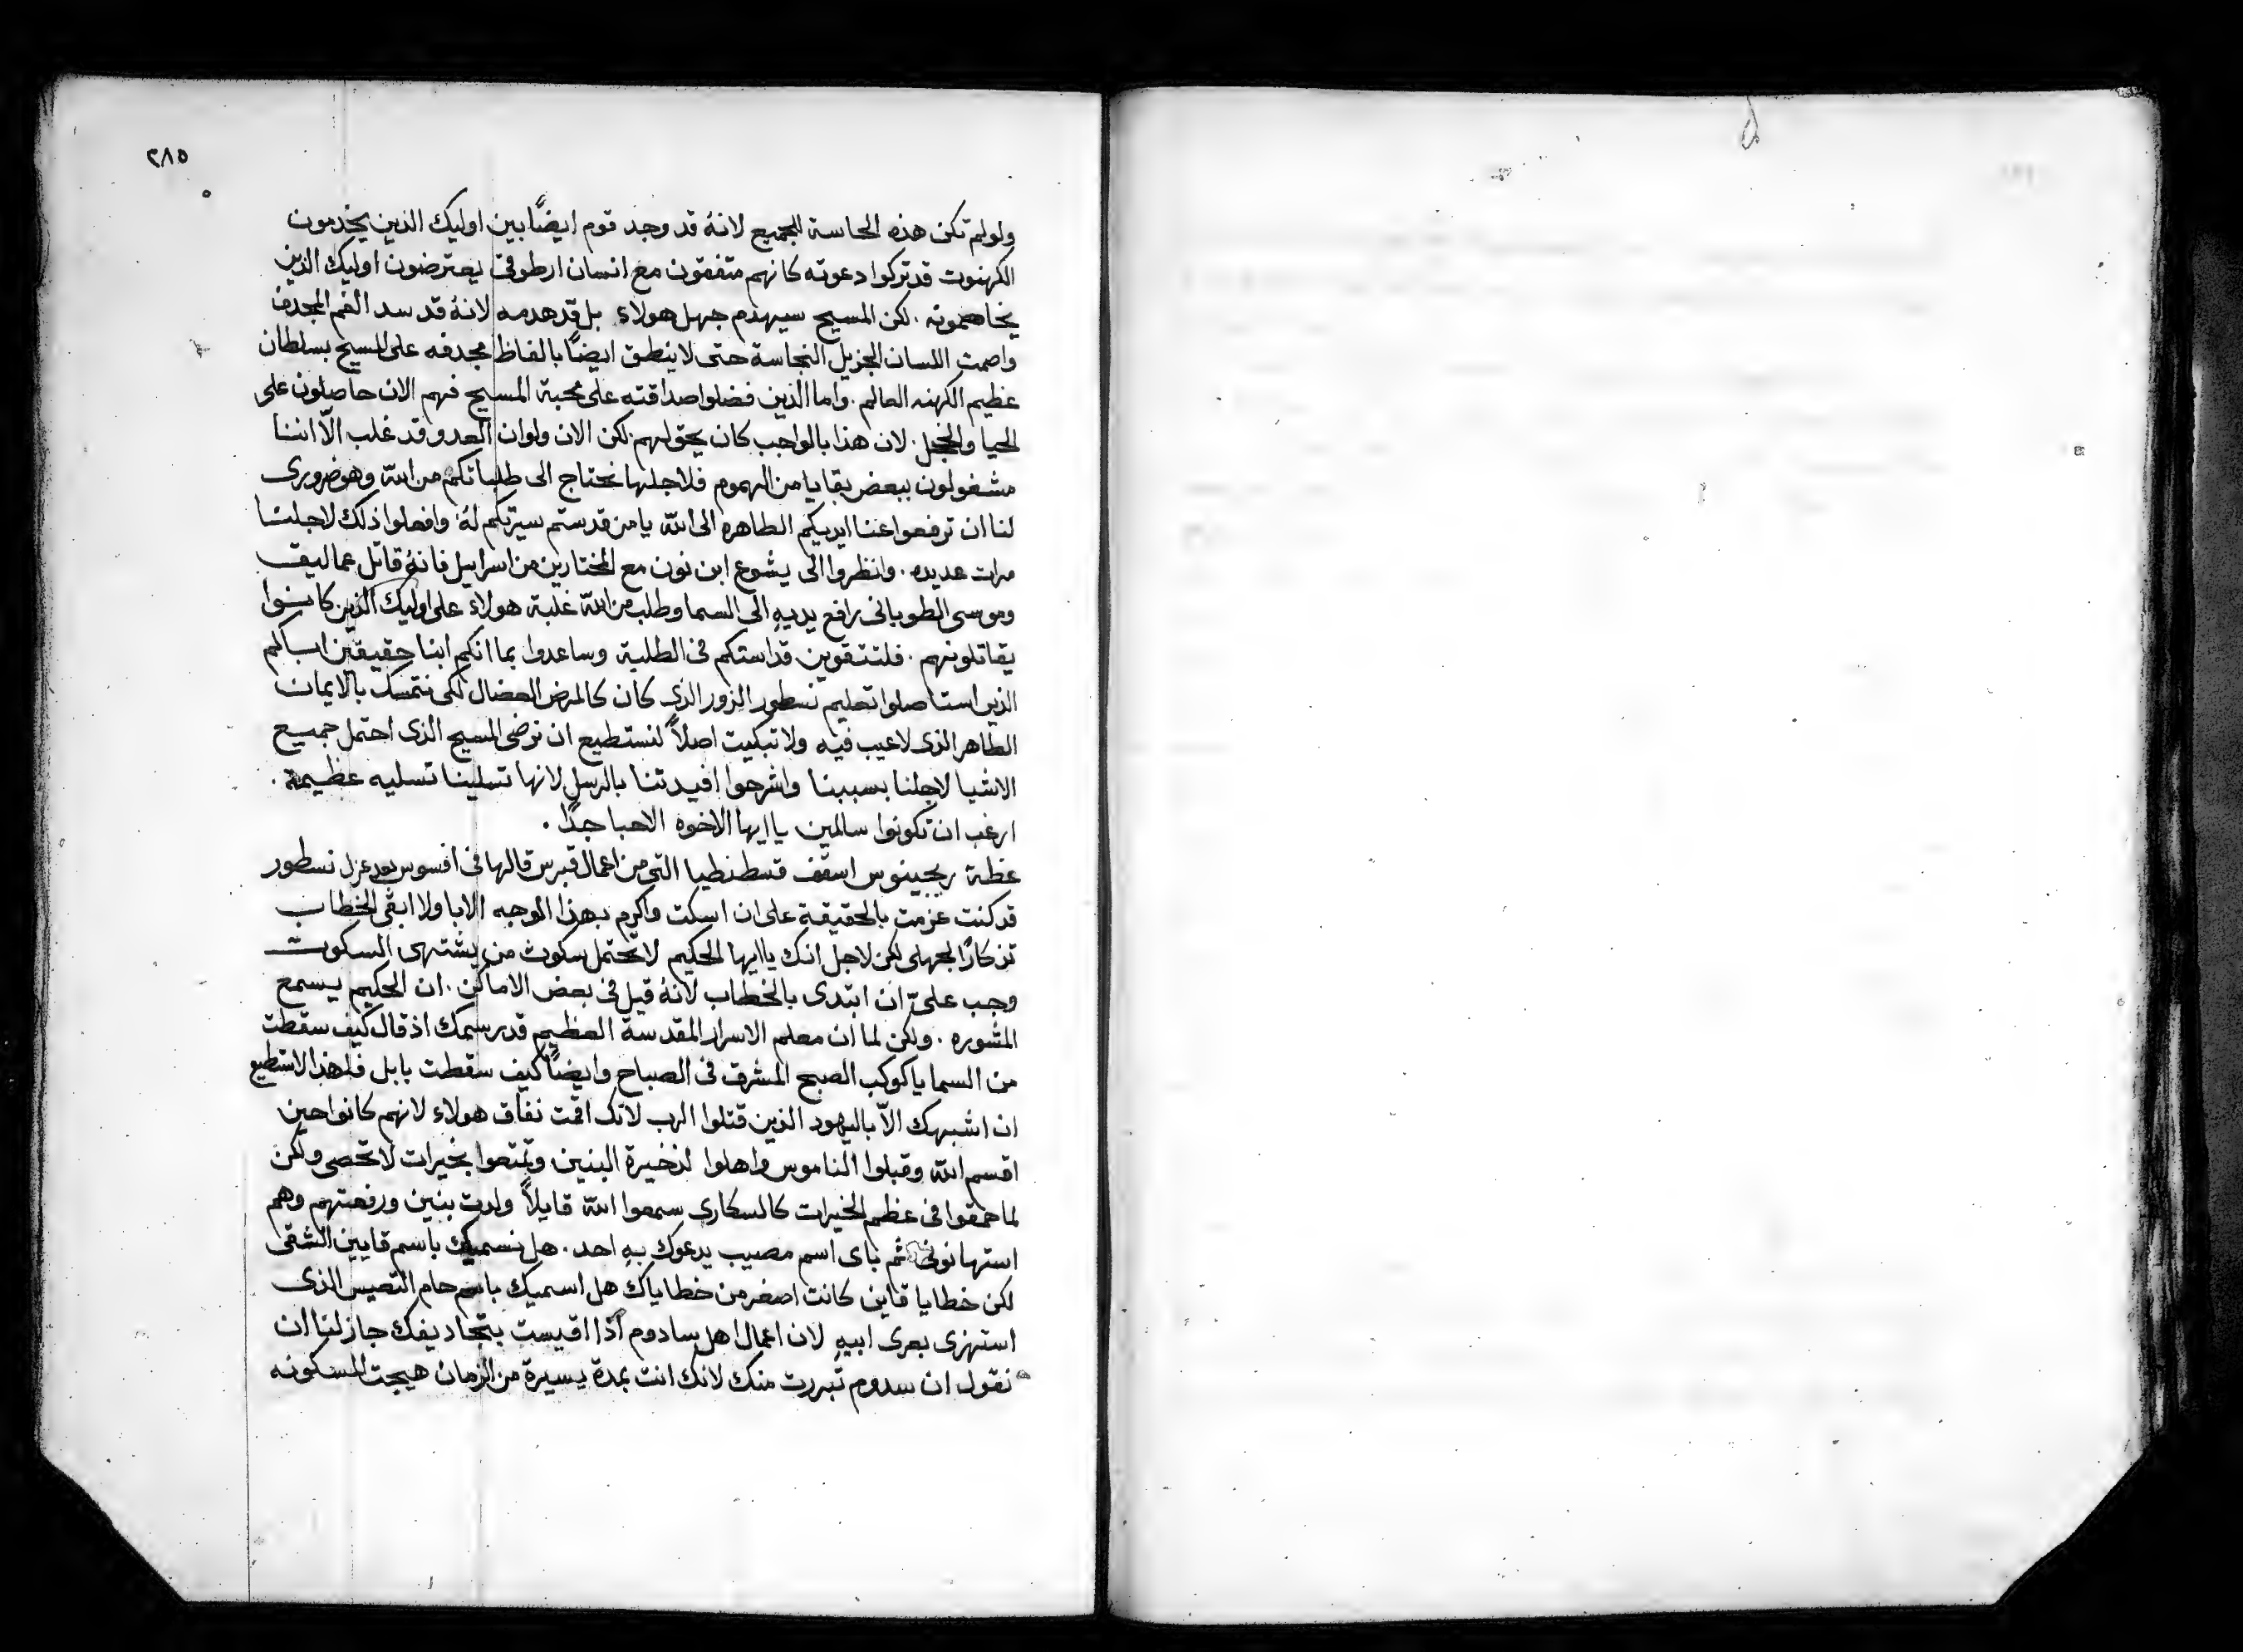 ٢٨٥
ولولم تكن هذه الحاسة لجميع لانهُ قد وجد قوم ايضًا بين اوليك الذين يخدمون
الكهنوت قد تركوا دعوته كانهم متفقون مع انسان ارطوقى يعترضون اوليك الذين
يخاصمونه . لكن المسيح سيهدم جهل هولاء بل قد هدمه لانهُ قد سد الفم المجدف
واصمت اللسان الجزيل النجاسة حتى لا ينطق ايضًا بالفاظ مجدفه على المسيح بسلطان
عظيم الكهنه العالم . واما الذين فضلوا صداقته على محبة المسيح فهم الان حاصلون على
الحيا والخجل . لان هذا بالواجب كان يحق لهم . لكن الان ولوان العدو قد غلب الّا اننا
مشغولون ببعض بقايا من الهموم فلاجلها نحتاج الى طلباتكم من الله وهو ضرورى
لنا ان ترفعوا عنا ايديكم الطاهره الى الله يا من قدستم سيرتكم لهُ وافعلوا ذلك لاجلنا
مرات عديده . وانظروا الى يشوع ابن نون مع المختارين من اسراييل فانهُ قاتل عماليق
وموسى الطوبانى رافع يديهِ الى السما وطلب من الله غلبة هولاء على اوليك الذين كانوا
يقاتلونهم . فلتتقوين قداستكم فى الطلبة وساعدوا بما انكم ابنا حقيقين لابآكم
الذين استاصلوا تعليم نسطور الزور الذى كان كالمرض العضال لكى نتمسك بالايمان
الطاهر الذى لا عيب فيه ولا تبكيت اصلاً لنستطيع ان نرضى المسيح الذى احتمل جميع
الاشيا لاجلنا بسببنا واشرحوا افيدتنا بالرسل لانها تسلينا تسليه عظيمة .
ارغب ان تكونوا سالمين يا ايها الاخوه الاحبا جدًا .
عظة ريجينوس اسقف قسطنطيا التى من اعمال قبرس قالها فى افسوس بعد عزل نسطور
قد كنت عزمت بالحقيقة على ان اسكت واكرم بهذا الوجه الابا ولا ابقى الخطاب
تذكارًا لجهلى لكن لاجل انك يا ايها الحكيم لا تحتمل سكوت من يشتهى السكوت
وجب علىّ ان ابتدى بالخطاب لانهُ قيل فى بعض الاماكن . ان الحكيم يسمع
المشوره . ولكن لما ان معلم الاسرار المقدسة العظيم قد رسمك اذ قال كيف سقطت
من السما يا كوكب الصبح المشرق فى الصباح وايضًا كيف سقطت بابل فلهذا لا استطيع
ان اشبهك الّا باليهود الذين قتلوا الرب لانك اقمت نفاق هولاء لانهم كانوا حين
اقسم الله وقبلوا الناموس واهلوا لذخيرة البنين وتمتعوا بخيرات لا تحصى ولكن
لما حمقوا فى عظم الخيرات كالسكارى سمعوا الله قايلاً ولدت بنين ورفعتهم وهم
استهانونى ثم باى اسم مصيب يدعوك بهِ احد . هل نسميك باسم قايين الشقى
لكن خطايا قاين كانت اصغر من خطاياك هل اسميك باسم حام التعيس الذى
استهزى بعرى ابيهِ لان اعمال اهل سادوم اذا اقيست بتجاديفك جاز لنا ان
نقول ان سدوم تبررت منك لانك انت بمدة يسيرة من الزمان هيجت المسكونه